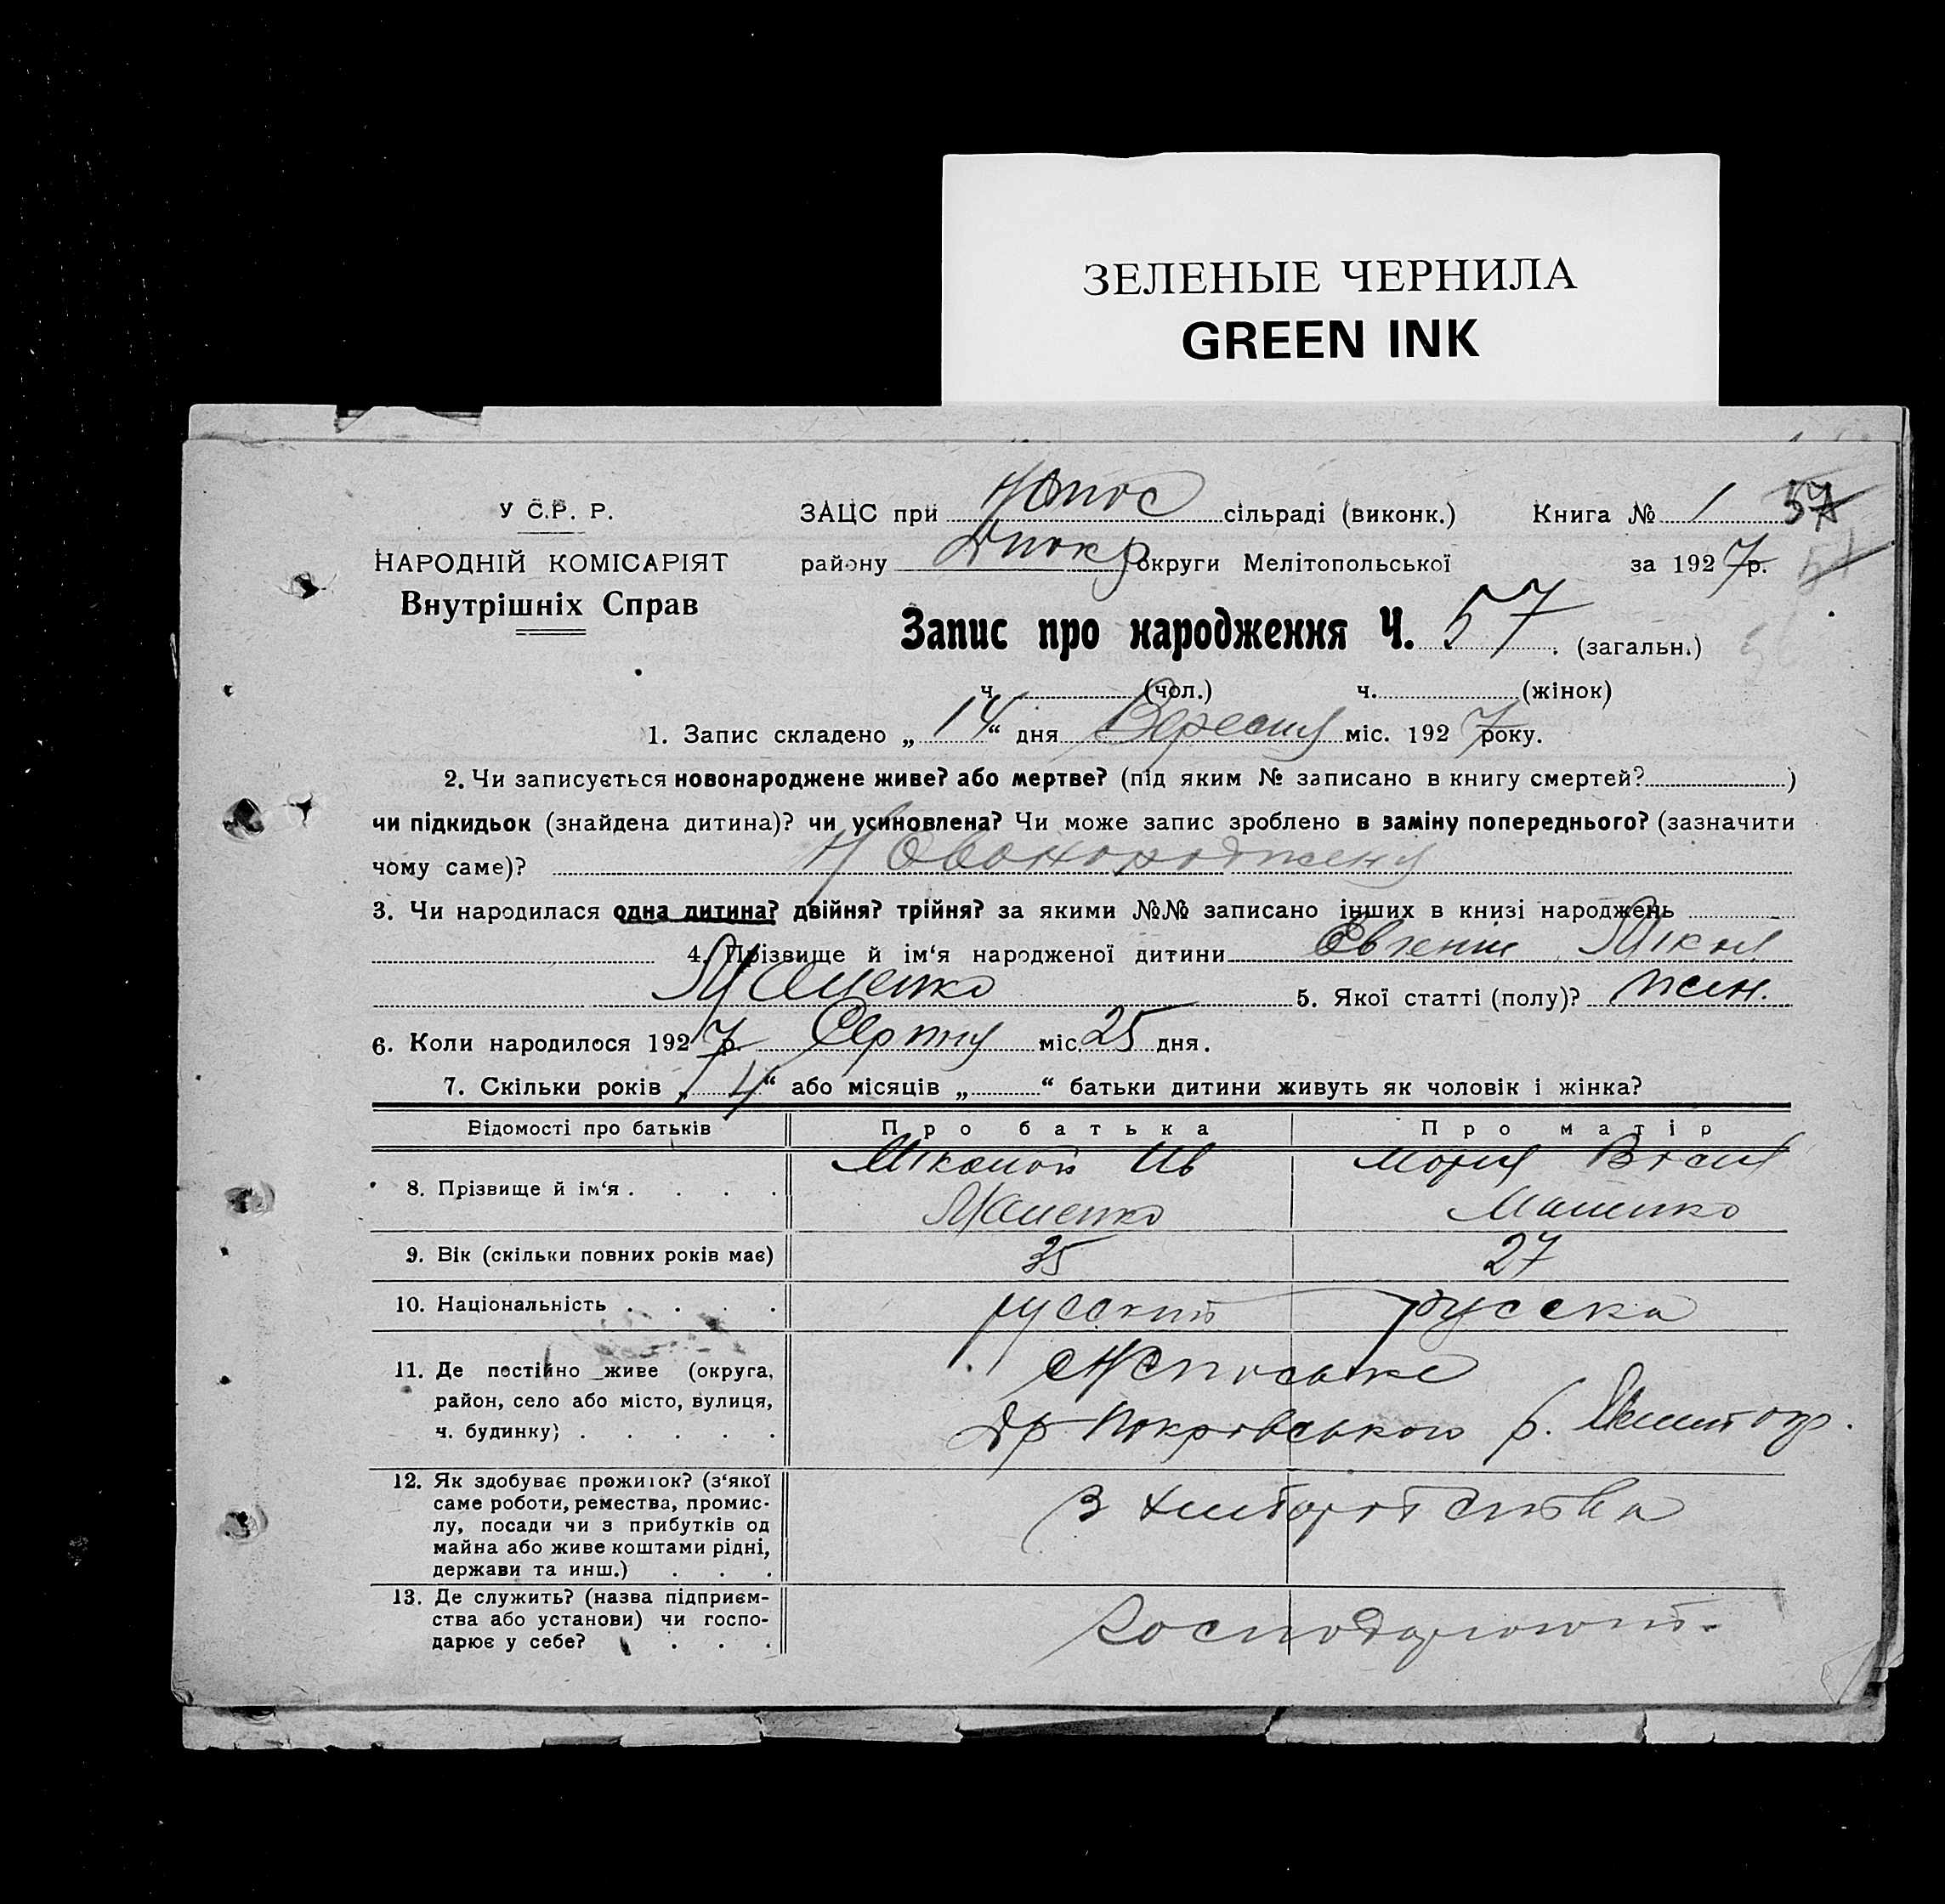 ЗЕЛЕНЫЕ ЧЕРНИЛА
GREEN INK
У С.Р. Р.
НАРОДНІЙ КОМІСАРІЯТ
Внутрішніх Справ
ЗАЦС при сільраді (виконк.) Книга № 1 57
району округи Мелітопольської за 1927 р.
Запис про народження Ч. 57 (загальн.)
ч. (чол.) ч. (жінок)
1. Запис складено „14“ дня Вересня міс. 1927 року.
2. Чи записується новонароджене живе? або мертве? (під яким № записано в книгу смертей? )
чи підкидьок (знайдена дитина)? чи усиновлена? Чи може запис зроблено в заміну попереднього? (зазначити
чому саме)? Новонороджену
3. Чи народилася одна дитина? двійня? трійня? за якими №№ записано інших в книзі народжень
4. Прізвище й ім‘я народженої дитини Евгенія
5. Якої статті (полу)? жін.
6. Коли народилося 1927 р. Серпня міс. 25 дня.
7. Скільки років „4“ або місяців „ “ батьки дитини живуть як чоловік і жінка?
Відомості про батьків Про батька Про матір
8. Прізвище й ім‘я . . . .
9. Вік (скільки повних років має) 35 27
10. Національність . . . . русский русска
11. Де постійно живе (округа,
район, село або місто, вулиця,
ч. будинку) . . . . .
12. Як здобуває прожиток? (з‘якої
саме роботи, ремества, промис-
лу, посади чи з прибутків од
майна або живе коштами рідні,
держави та инш.) . . .
13. Де служить? (назва підприєм-
ства або установи) чи госпо-
дарює у себе? . . .